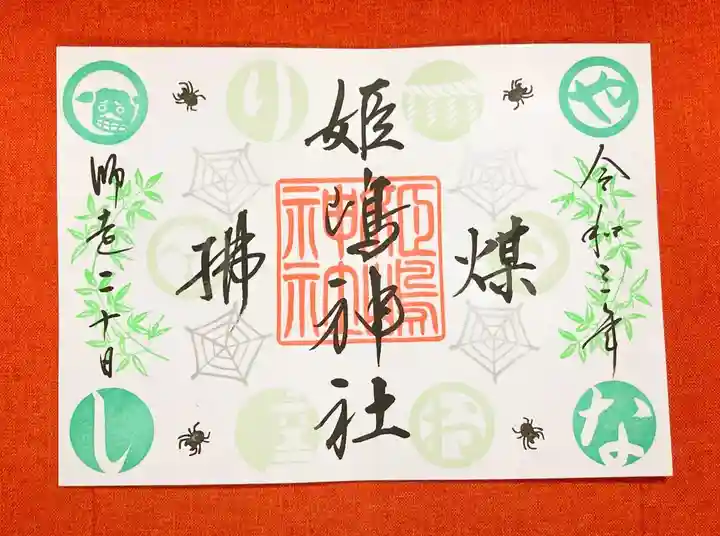 令和三年
煤
姫嶋神社
拂
師走二十日
姫嶋
神社
や
り
な
お
し